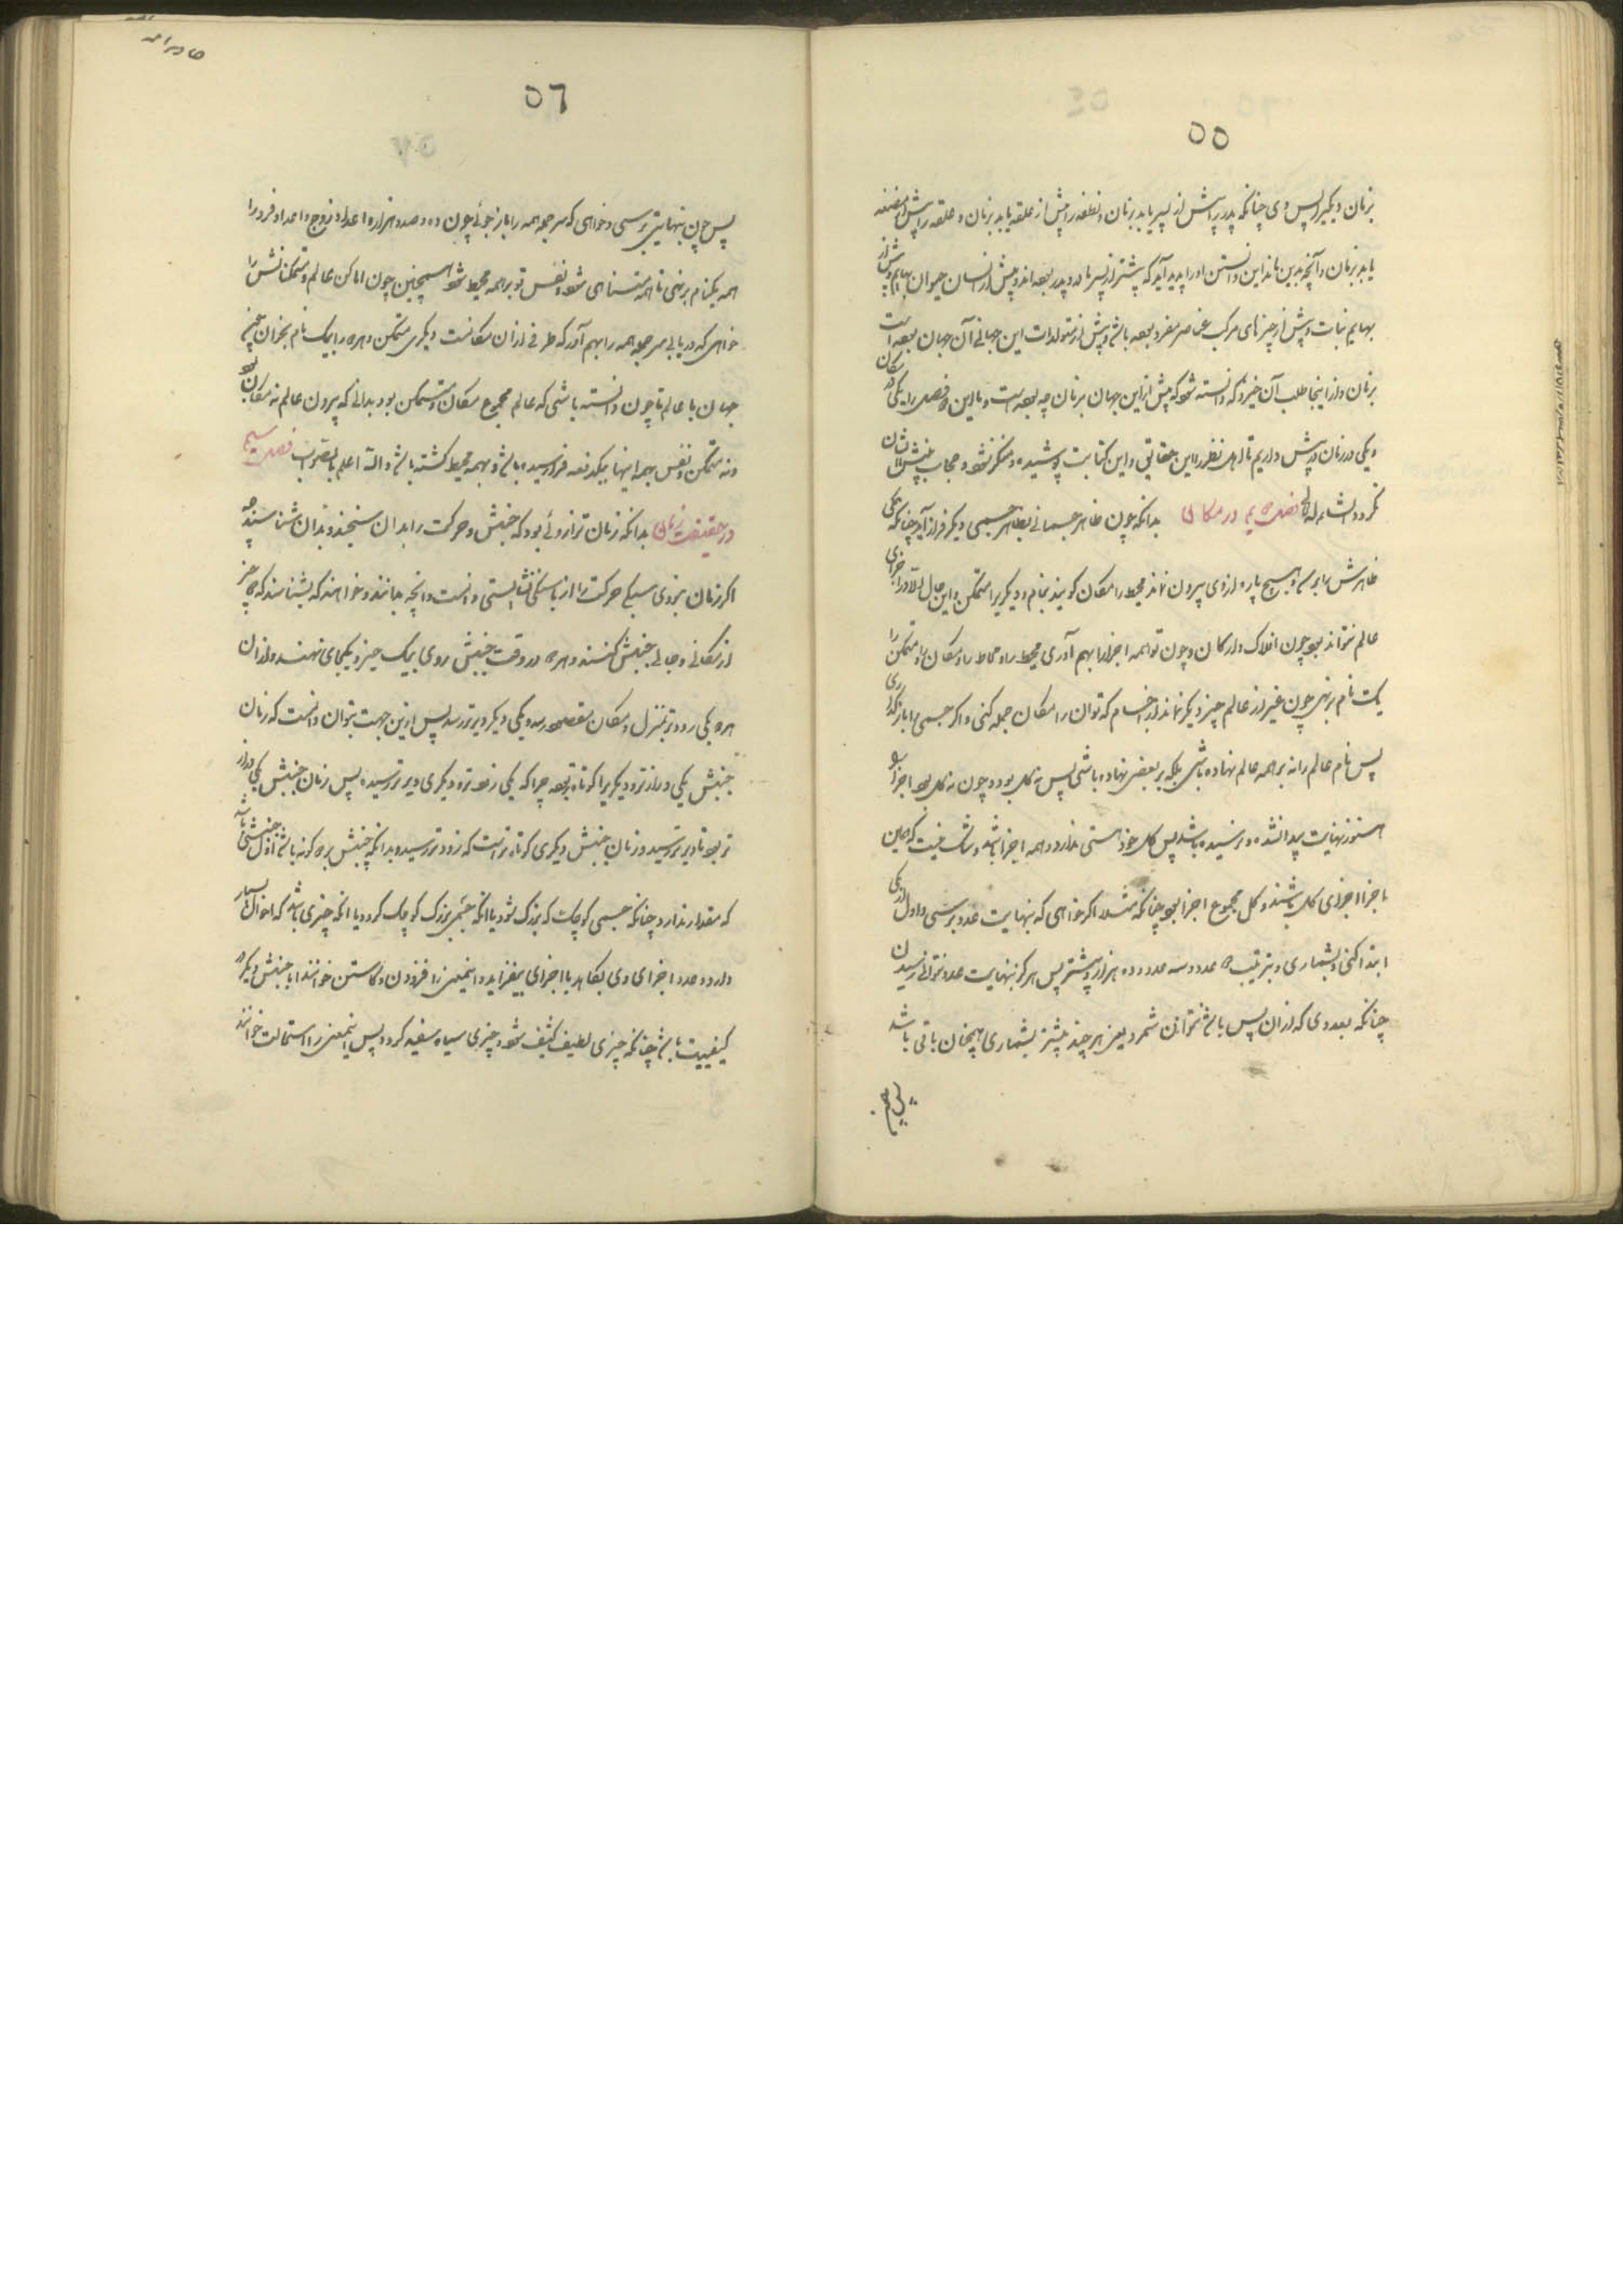 ٥٥
بزمان دیگر از پس وی چنانکه پدر را پیش از پسر یابد بزمان و نطفه را پیش از علقه یابد بزمان و علقه را پیش از مضغه
یابد بزمان و آنچه بدین ماند از این دانستن او را پدید آید که پیشتر از پسر مادر و پدر بوده اند و پیش از انسان حیوان بهایم و پیش از
بهایم نبات و پیش از چیزهای مرکب عناصر مفرد بوده باشد و پیش از متولدات این جهانی آن جهان بوده است
بزمان و از اینجا طلب آن خیزد که دانسته شود که پیش از این جهان بزمان چه بوده است و ما این دو فصل را یکی در مکان
و یکی در زمان در پیش داریم تا اهل نظر را این حقایق و این کتابت پوشیده و منکر نشود و حجاب بینش شان
نگردد انشاءالله فصل دویم در مکان بدانکه چون ظاهر جسمانی بظاهر جسمی دیگر فراز آید چنانکه همگی
ظاهرش برابر شود و هیچ پاره از وی بیرون نماند محیط را مکان گویند بنام و دیگریرا متمکن و این حال الا در اجزای
عالم نتواند بود چون افلاک و ارکان و چون تو همه اجزا را بهم آوری محیط را و محاط را و مکان را و متمکن را
یک نام برنهی چون غیر از عالم چیز دیگر نماند از اجسام که توان را مکان جمله کنی و اگر جسمی را باز گذاری
پس نام عالم را نه بر همه عالم نهاده باشی بلکه بر بعضی نهاده باشی پس نه کل بود و چون نه کل بود اجزا او
هنوز نهایت پیدا نشده و نرسیده باشد پس کل خود هستی ندارد و همه اجزا باشد و شک نیست که این
اجزا اجزای کل باشند و کل مجموع اجزا بود چنانکه مثلا اگر خواهی که بنهایت عدد برسی و اول از یکی
ابتدا کنی و بشماری و بترتیب دو عدد و سه عدد و ده هزار و بیشتر پس هرگز بنهایت عدد نتوانی رسیدن
چنانکه بعددی که از ان پس باشد نتوان شمرد یعنی هر چند بیشتر بشماری همچنان باقی باشد
پس چون
٥٦
پس چون بنهایتی برسی و خواهی که سر جمله همه را باز جوئی چون ده و صد و هزار و اعداد زوج و اعداد فرد را
همه یکنام برنهی تا همه متناهی شود و نفس تو بر همه محیط شود همچنین چون اماکن عالم و متمکنانش را
خواهی که دریابی سر جمله همه را بهم آور که طرفی از ان مکانست و دیگری متمکن و هر دو را بیک نام بخوان همچو
جهان یا عالم تا چون دانسته باشی که عالم مجموع مکان و متمکن بود بدانی که بیرون عالم نه مکان بود
و نه متمکن و نفس بهمه اینها بیکدفعه فرا رسیده باشد و بهمه محیط گشته باشد والله اعلم بالصواب فصل سیم
در حقیقت زمان بدانکه زمان ترازوئی بود که جنبش و حرکت را بدان سنجند و بدان شناسند چه
اگر زمان نبودی سبکی حرکت را از باسنگی نشایستی دانست و آنچه جانند و خواهند که بشناسند که دو چیز
از مکانی و جائی جنبش کنند و هر دو در وقت جنبش روی بیک حیز و یکجای نهند و از ان
هر دو یکی زودتر بمنزل و مکان مقصود رسد و یکی دیگر دیرتر رسد پس ازین جهت بتوان دانست که زمان
جنبش یکی درازتر و دیگریرا کوتاه تر بود چرا که یکی زودتر و دیگری دیرتر رسیده پس زمان جنبش یکی دراز
تر بود تا دیرتر رسید و زمان جنبش دیگری کوتاه تر است که زودتر رسید و بدانکه جنبش بر دو گونه باشد اول جنبشی باشد
که مقدار ندارد چنانکه جسمی کوچک که بزرگ شود یا آنکه جسمی بزرگ کوچک گردد یا آنکه چیزی باشد که احوال بسیار
دارد و عدد اجزای وی بکاهد یا اجزای بیفزاید و اینمعنی را افزودن و کاستن خوانند اما جنبش دیگر در
کیفییت باشد چنانکه چیزی لطیف کثیف شود و چیزی سیاه سفید گردد پس اینمعنی را استحالت خوانند